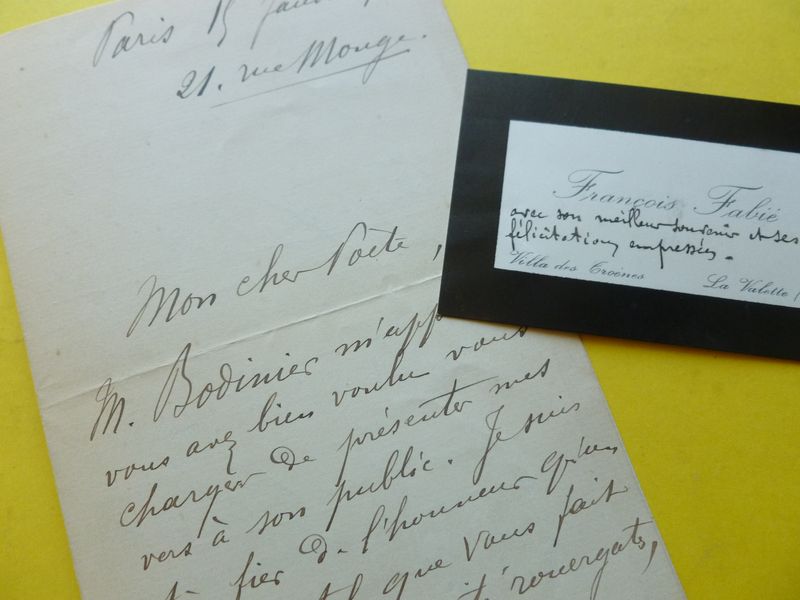 Paris 15 Janv
21. rue Monge.
Mon cher Poète,
M. Bodinier m'app
vous avez bien voulu vous
charger de présenter mes
vers à son public. Je suis
fier de l'honneur qu'un
tel que vous fait
rouergats,
François Fabié
avec son meilleur souvenir et ses
félicitations empressées.
Villa des Troènes
La Valette (